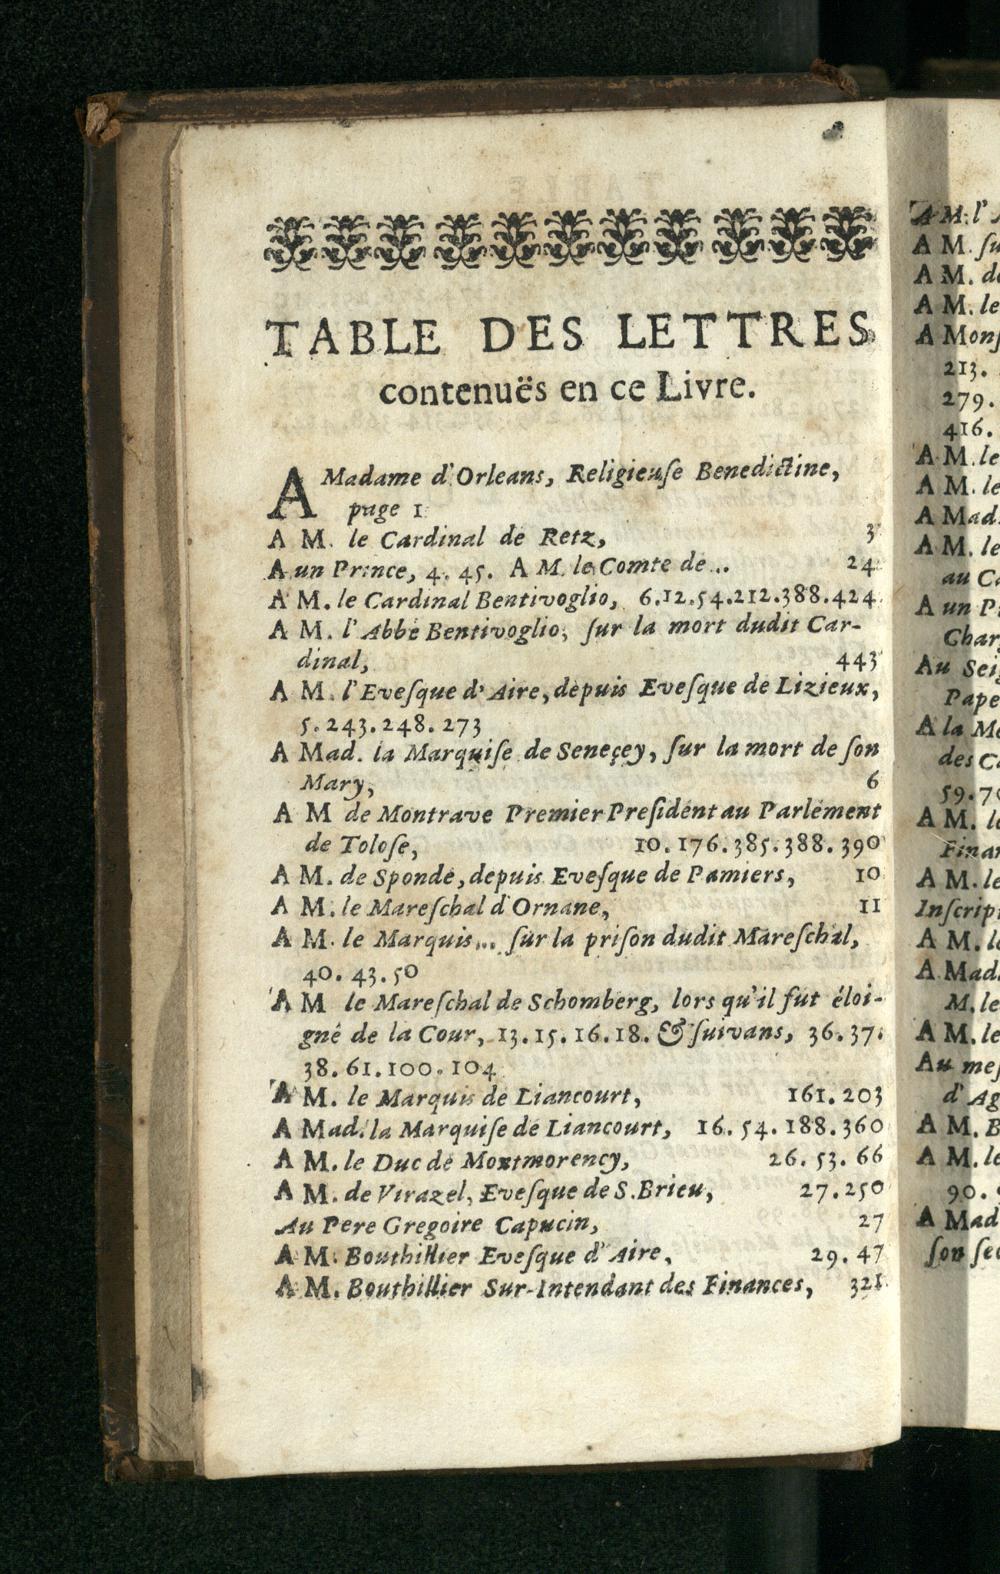 TABLE DES LETTRES
contenuës en ce Livre.
A Madame d'Orleans, Religieuſe Benedictine,
page 1
A M. le Cardinal de Retz, 3
A un Prince, 4. 45. A M. le Comte de... 24
A M. le Cardinal Bentivoglio, 6.12.54.212.388.424
A M. l'Abbé Bentivoglio, ſur la mort dudit Car-
dinal, 443
A M. l'Eveſque d'Aire, depuis Eveſque de Lizieux,
5.243.248.273
A Mad. la Marquiſe de Seneçey, ſur la mort de ſon
Mary, 6
A M de Montrave Premier Preſident au Parlement
de Toloſe, 10.176.385.388.390
A M. de Sponde, depuis Eveſque de Pamiers, 10
A M. le Mareſchal d'Ornane, 11
A M. le Marquis... ſur la priſon dudit Mareſchal,
40. 43. 50
A M le Mareſchal de Schomberg, lors qu'il fut éloi-
gné de la Cour, 13.15.16.18. & ſuivans, 36.37.
38.61.100.104
A M. le Marquis de Liancourt, 161.203
A Mad. la Marquiſe de Liancourt, 16. 54. 188. 360
A M. le Duc de Montmorency, 26. 53. 66
A M. de Virazel, Eveſque de S. Brieu, 27.250
Au Pere Gregoire Capucin, 27
A M. Bouthillier Eveſque d'Aire, 29. 47
A M. Bouthillier Sur-Intendant des Finances, 321
A M. l'
A M. ſu
A M. de
A M. le
A Monſ
213.
279.
416.
A M. le
A M. le
A Mad.
A M. le
au Ca
A un Pr
Char
Au Seig
Pape
A la Me
des Ca
59.70
A M. le
Finan
A M. le
Inſcript
A M. le
A Mad.
M. le
A M. le
Au meſ
d'Ag
A M. B
A M. le
90.
A Mad
ſon ſec